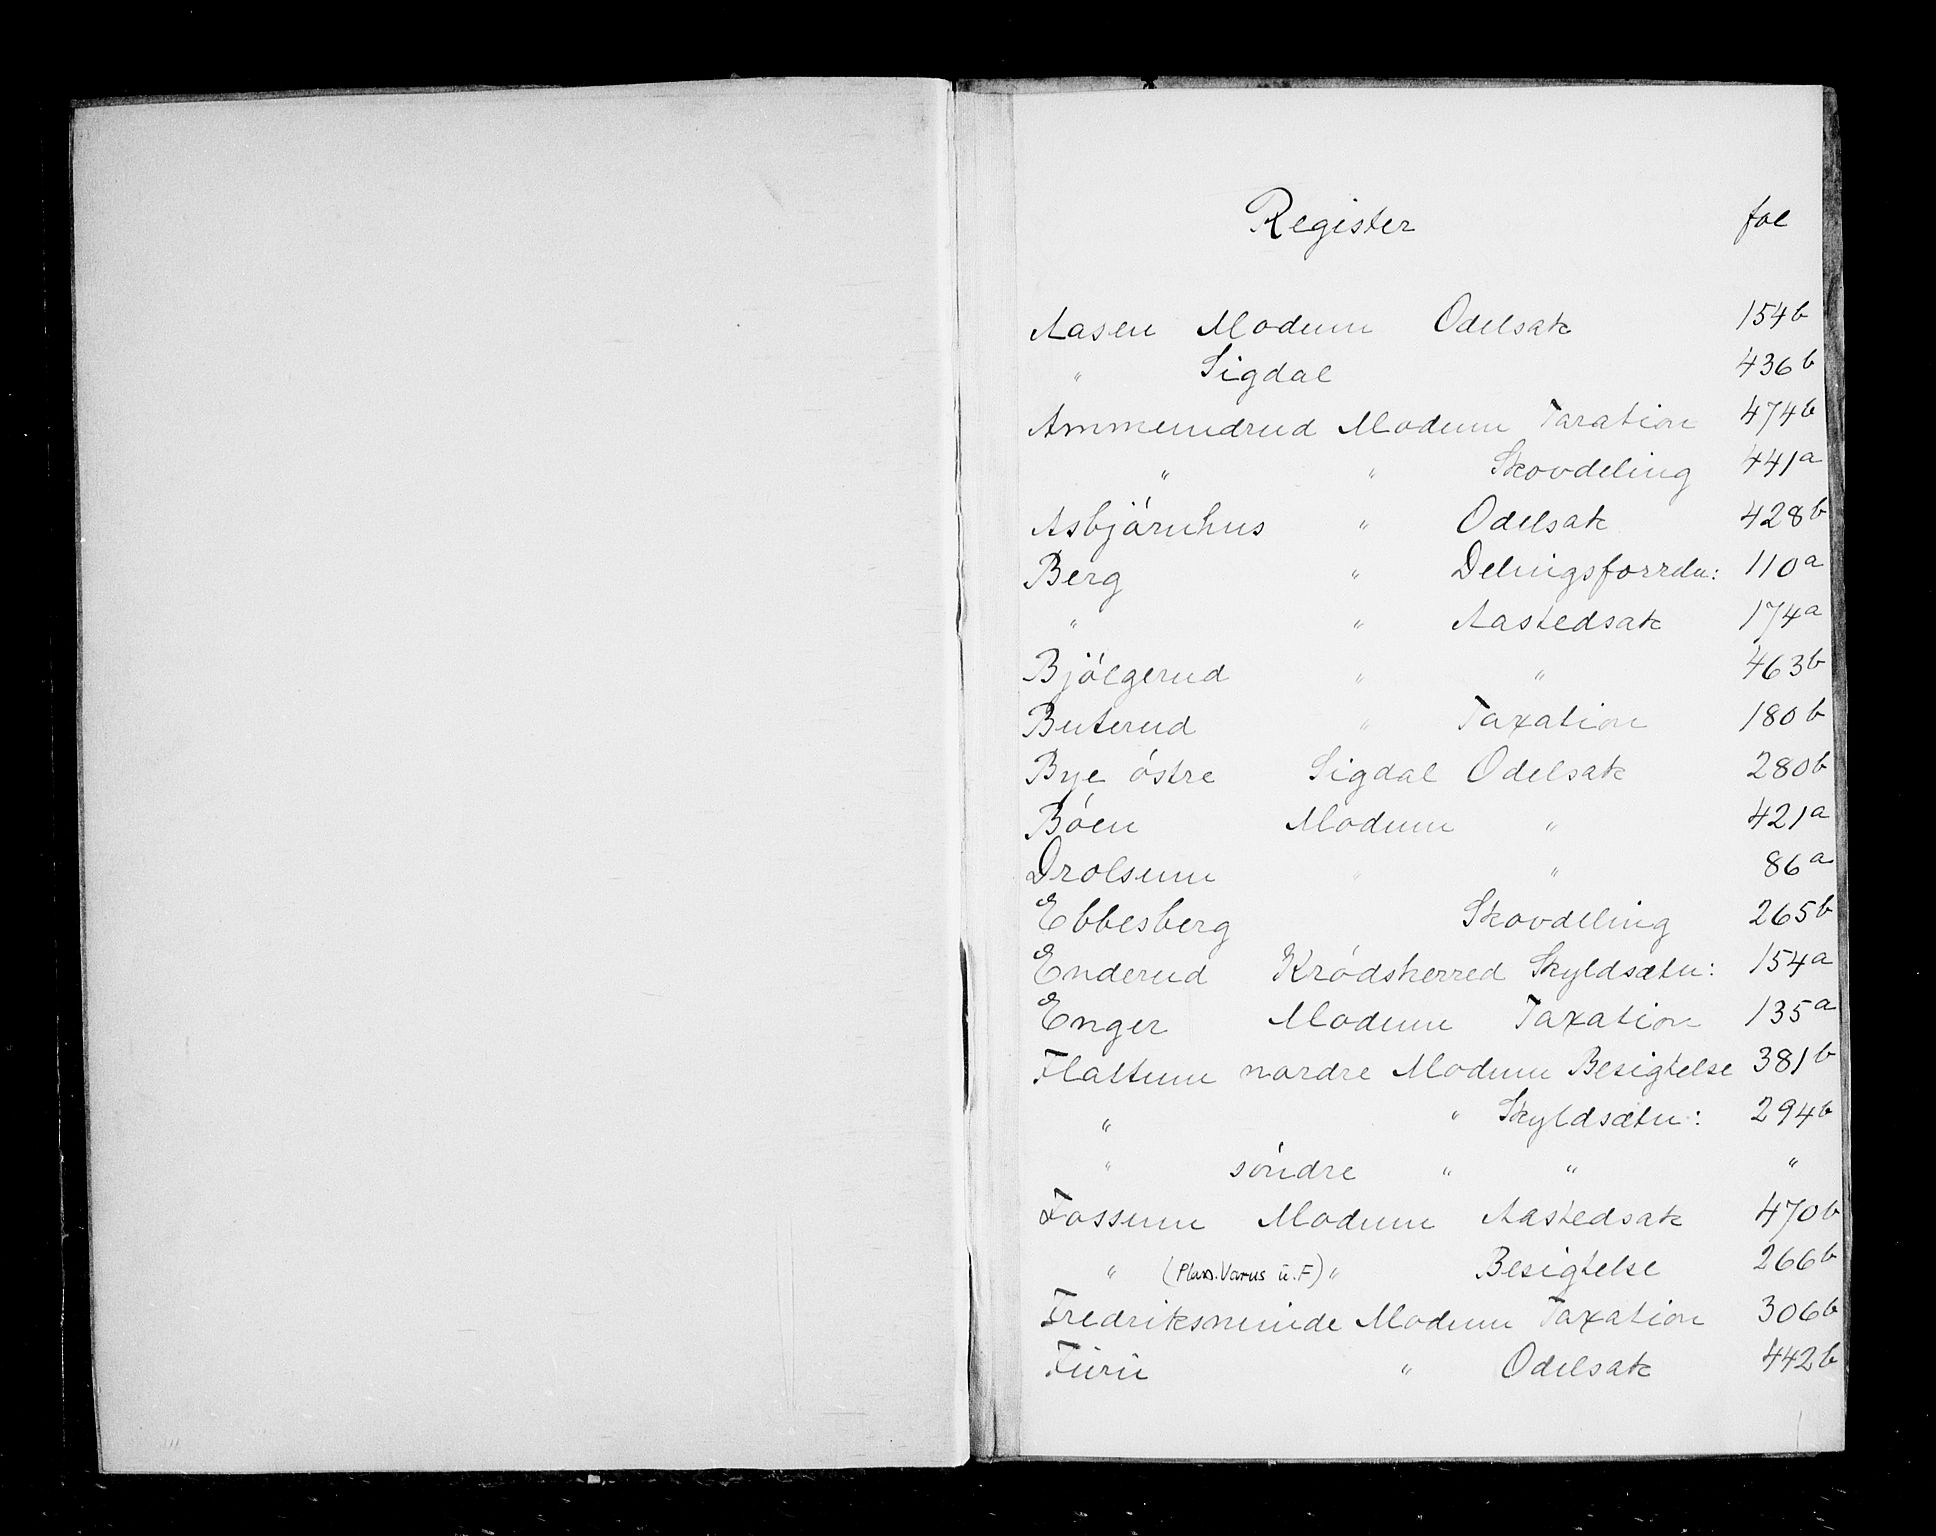 Register fol
Aasen Modum Odelsak 154b
" Sigdal 436b
Ammeundrud Modum Taxation 474b
" " Skovdeling 441a
Asbjórnhus " Odelsak 428b
Berg " Delingsforretn: 110a
" " Aastedsak 174a
Bjólgerud " " 463b
Buterud " Taxation 180b
Bye óstre Sigdal Odelsak 280b
Bóen Modum " 421a
Drolsum " " 86a
Ebbesberg Skovdeling 265b
Enderud Kródsherred Skyldsætn: 154a
Enger Modum Taxation 135a
Flattum nordre Modum Besigtelse 381b
" " Skyldsætn: 294b
" sóndre " " "
Fossum Modum Aastedsak 470b
" (Plan. Varus u. F) " Besigtelse 266b
Fredriksminde Modum Taxation 306b
Furu " Odelsak 442b